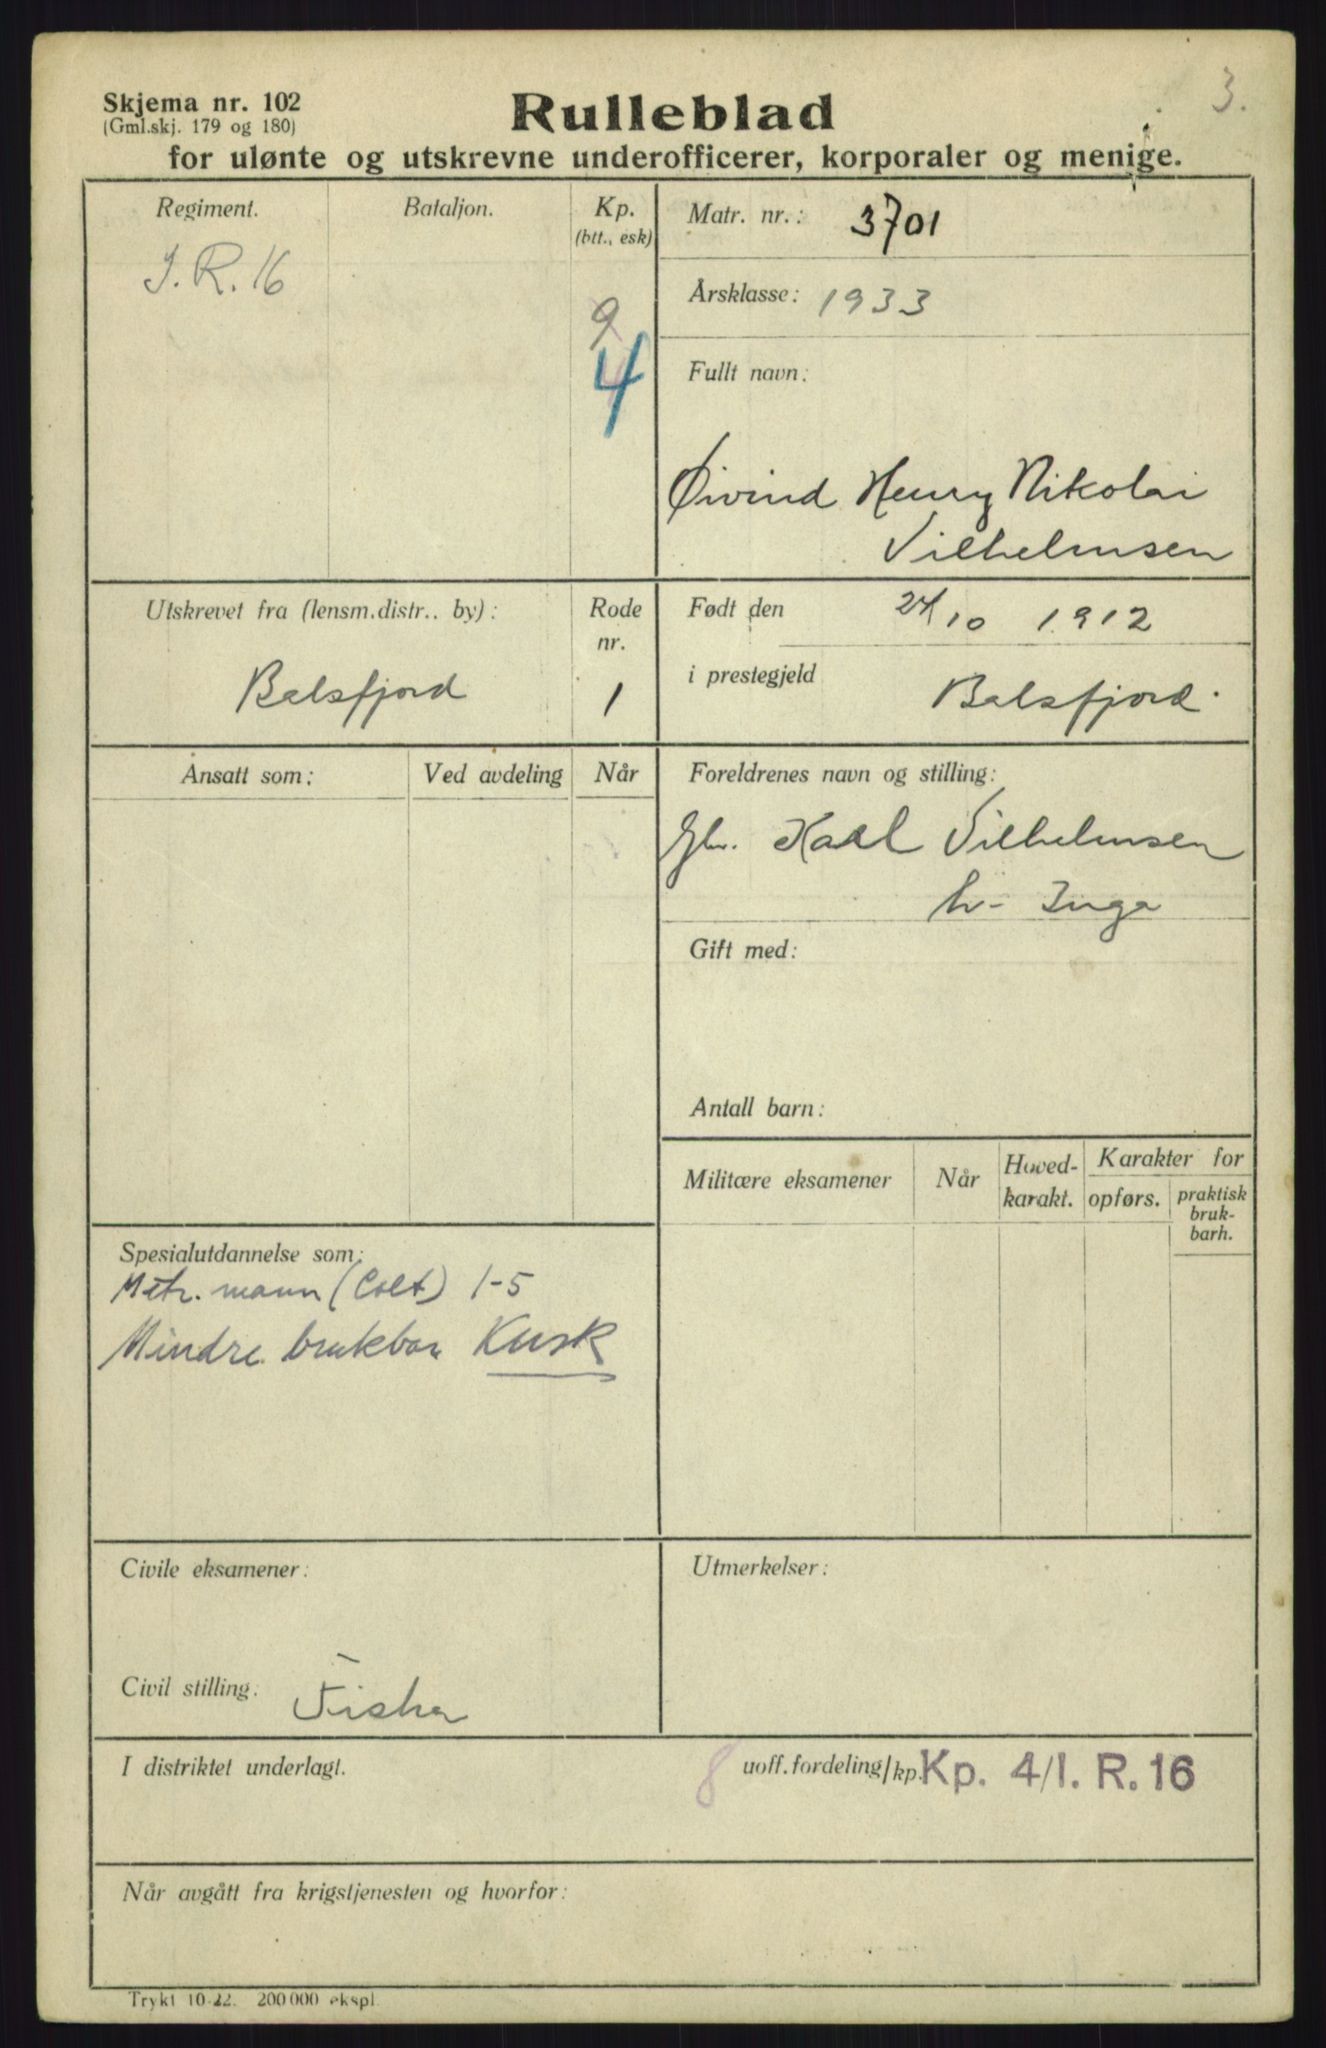 3.
Skjema nr. 102
(Gml.skj. 179 og 180)
Rulleblad
for ulønte og utskrevne underofficerer, korporaler og menige.
Regiment.
Bataljon.
Kp.
(btt., esk)
I. R. 16
9
4
Matr. nr.: 3701
Årsklasse: 1933
Fullt navn:
Øivind Henry Nikolai
Vilhelmsen
Utskrevet fra (lensm.distr.. by):
Balsfjord
Rode
nr.
1
Født den 24/10 1912
i prestegjeld Balsfjord.
Ansatt som:
Ved avdeling
Når
Foreldrenes navn og stilling:
Karl Vilhelmsen
h- Inga
Gift med:
Antall barn:
Militære eksamener
Når
Hoved-
karakt.
Karakter for
opførs.
praktisk
bruk-
barh.
Spesialutdannelse som:
Mitr. mann (Colt) 1-5
Mindre brukbar Kusk
Civile eksamener:
Civil stilling: Fisker
Utmerkelser:
I distriktet underlagt.
8 uoff.fordeling/kp. Kp. 4/I. R. 16
Når avgått fra krigstjenesten og hvorfor:
Trykt 10-22. 200 000 ekspl.